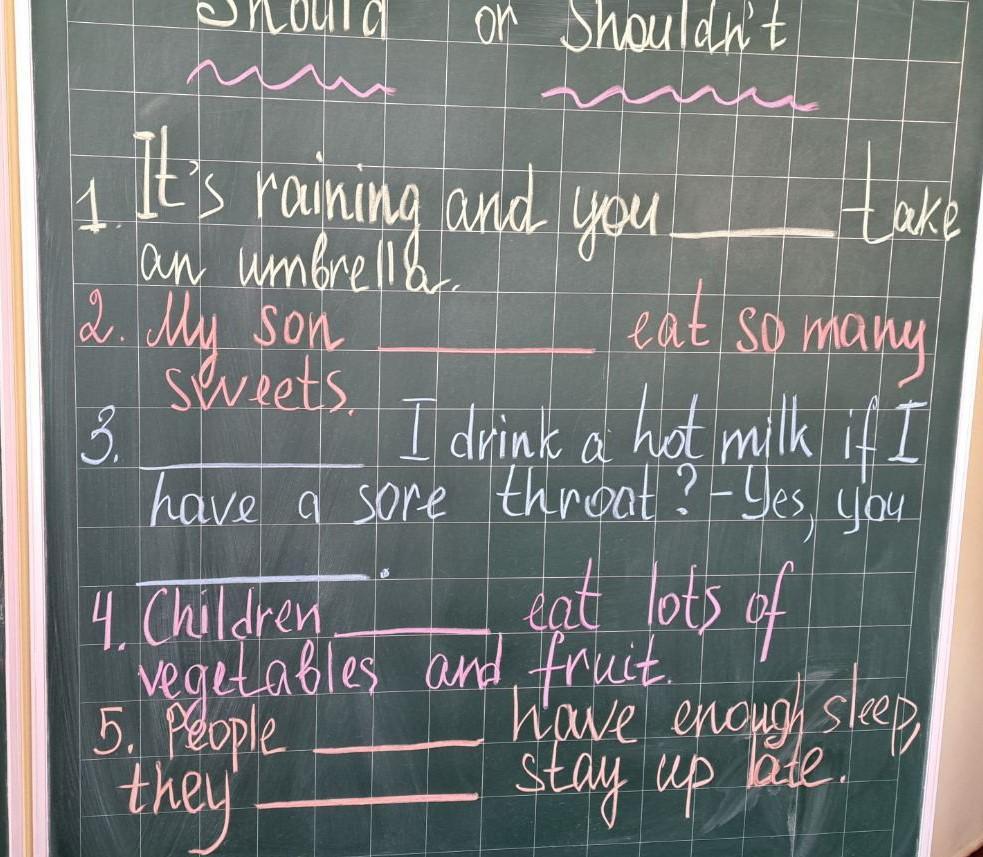 Should or Shouldn't
1. It's raining and you ______ take
an umbrella.
2. My son ______ eat so many
sweets.
3. ______ I drink a hot milk if I
have a sore throat? - Yes, you
______.
4. Children ______ eat lots of
vegetables and fruit.
5. People ______ have enough sleep,
they ______ stay up late.